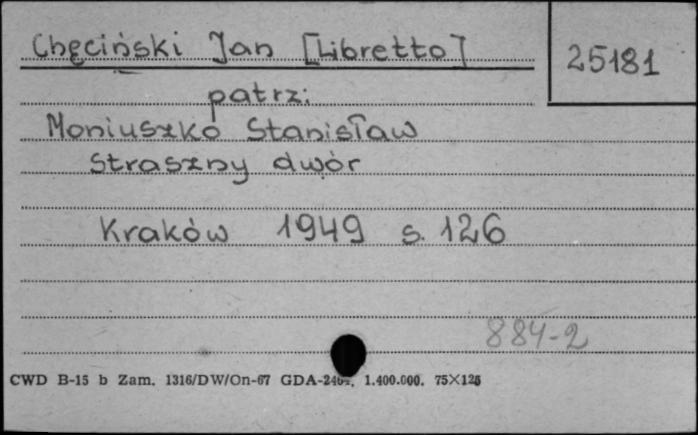 Chęciński Jan [Libretto]
25181
patrz:
Moniuszko Stanisław
Straszny dwór
Kraków 1949 s. 126
884-2
CWD B-15 b Zam. 1316/DW/On-67 GDA-2464, 1.400.000. 75×125